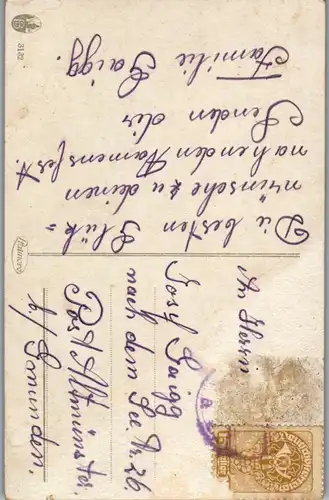 Die besten Glük=
wünsche zu deinen
nahenden Namensfest.
Senden dir
Familie Gaigg.
An Herrn
Josef Gaigg
nach dem See. Nr. 26
Post Altmünster.
b/ Gmunden.
3122